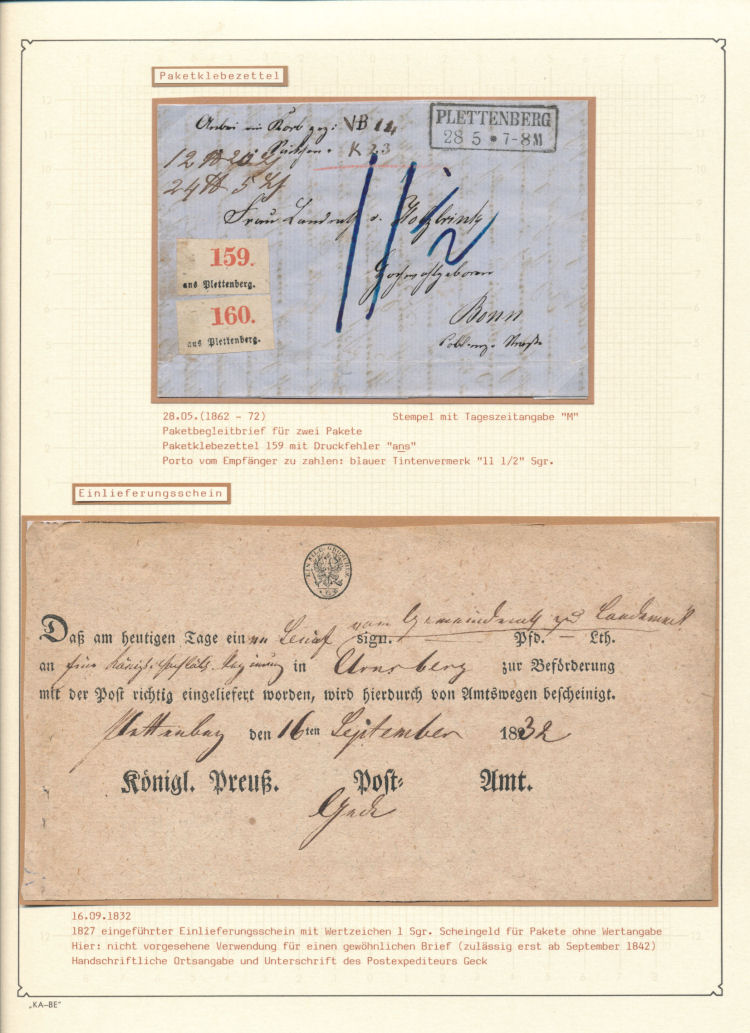 Paketklebezettel
Anbei ein Korb gez: VB 12
K 23
PLETTENBERG
28 5 * 7-8M
12 20
24 5
Frau Landrath v.
11 1/2
159.
ans Plettenberg.
160.
aus Plettenberg.
Hochwohlgeboren
Bonn
28.05.(1862 - 72) Stempel mit Tageszeitangabe "M"
Paketbegleitbrief für zwei Pakete
Paketklebezettel 159 mit Druckfehler "ans"
Porto vom Empfänger zu zahlen: blauer Tintenvermerk "11 1/2" Sgr.
Einlieferungsschein
vom Gemeinderath zu Landemert
Daß am heutigen Tage ein sign. — Pfd. — Lth.
an eine Königl. Regierung in Arnsberg zur Beförderung
mit der Post richtig eingeliefert worden, wird hierdurch von Amtswegen bescheinigt.
Plettenberg den 16ten September 1832
Königl. Preuß. Post- Amt.
Geck
16.09.1832
1827 eingeführter Einlieferungsschein mit Wertzeichen 1 Sgr. Scheingeld für Pakete ohne Wertangabe
Hier: nicht vorgesehene Verwendung für einen gewöhnlichen Brief (zulässig erst ab September 1842)
Handschriftliche Ortsangabe und Unterschrift des Postexpediteurs Geck
„KA-BE"